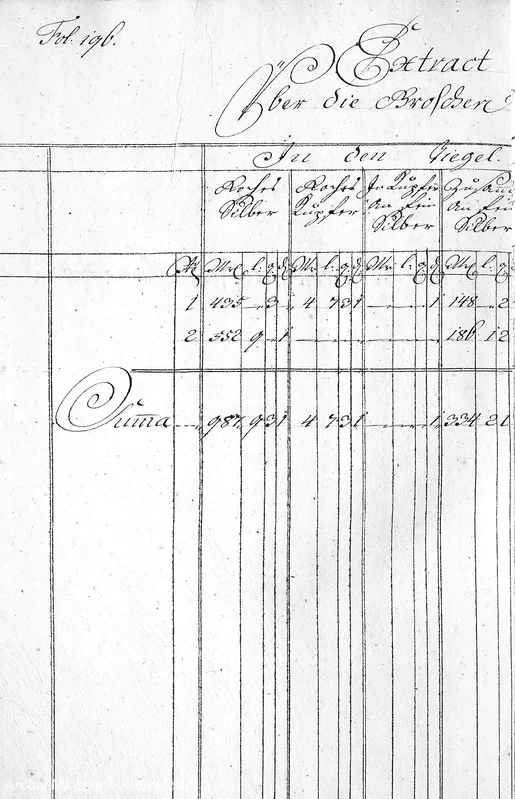 Fol. 196.
Extract
Über die Broschen
In den Tiegel.
Roches Silber Roches Kupfer In Kupfer An fein Silber
An fein Silber
N: Mr: l: q: d: Mr: l: q: d: Mr: l: q: d: Mr: l: q:
1 435 — 3 — 4 7 3 1 — — — 1 148 — 2
2 552 9 — 1 — — — — 186 1 2
Summa — 987 9 3 1 4 7 3 1 — — — 1 334 2 1